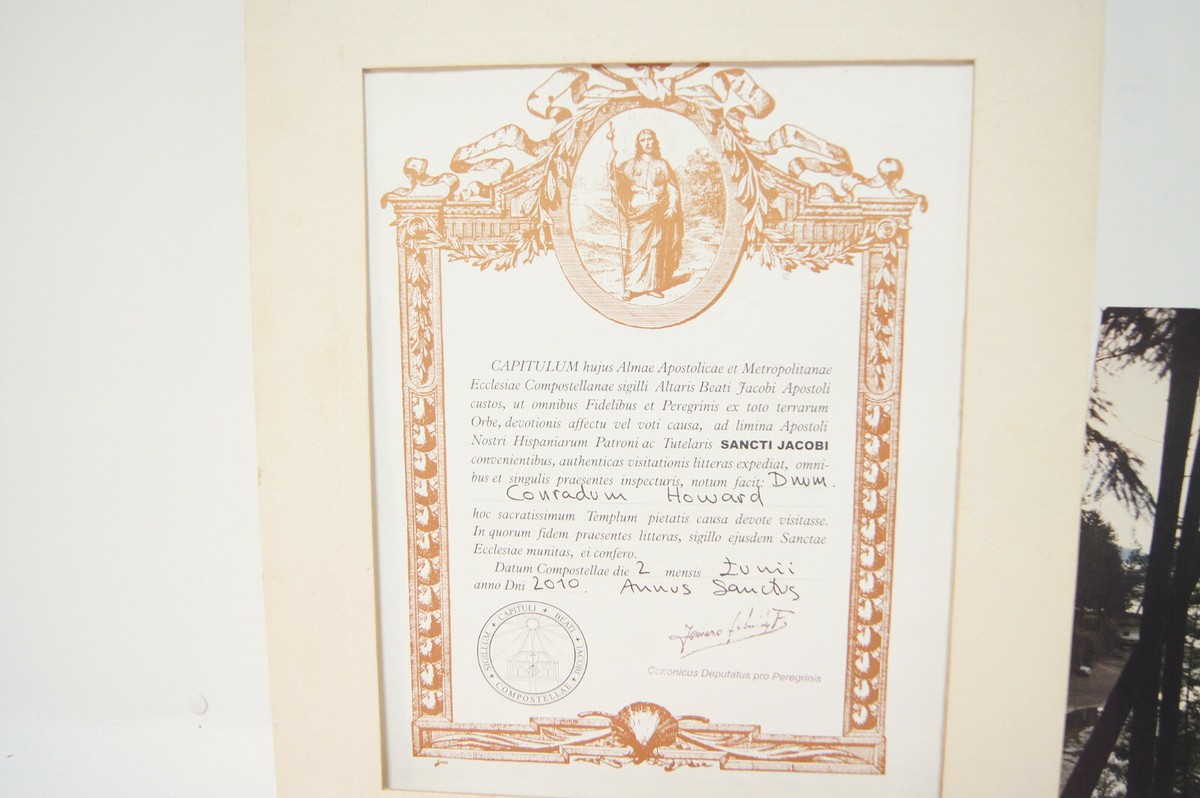 CAPITULUM hujus Almae Apostolicae et Metropolitanae
Ecclesiae Compostellanae sigilli Altaris Beati Jacobi Apostoli
custos, ut omnibus Fidelibus et Peregrinis ex toto terrarum
Orbe, devotionis affectu vel voti causa, ad limina Apostoli
Nostri Hispaniarum Patroni ac Tutelaris SANCTI JACOBI
convenientibus, authenticas visitationis litteras expediat, omni-
bus et singulis praesentes inspecturis, notum facit: Dnum.
Conradum Howard
hoc sacratissimum Templum pietatis causa devote visitasse.
In quorum fidem praesentes litteras, sigillo ejusdem Sanctae
Ecclesiae munitas, ei confero.
Datum Compostellae die 2 mensis Iunii
anno Dni 2010. Annus Sanctus
SIGILLUM CAPITULI BEATI JACOBI COMPOSTELLAE
Canonicus Deputatus pro Peregrinis